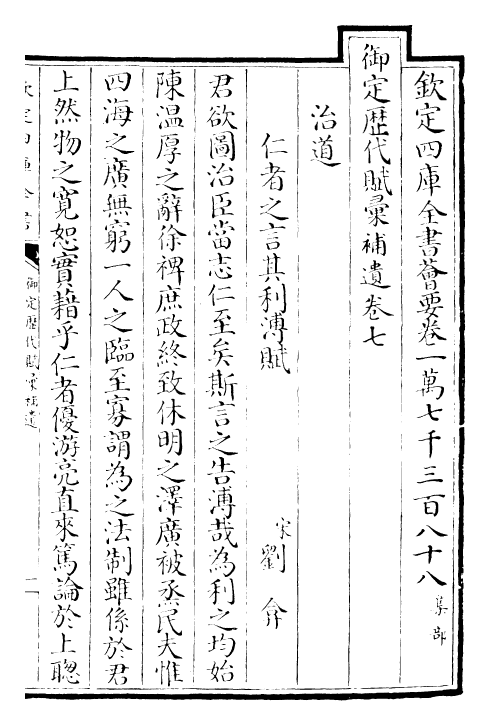 欽定四庫全書薈要卷一萬七千三百八十八 集部
御定歴代賦彙補遺卷七
治道
仁者之言其利溥賦 宋劉弇
君欲圖治臣當志仁至矣斯言之告溥哉為利之均始
陳温厚之辭徐禆庶政終致休明之澤廣被烝民夫惟
四海之廣無窮一人之臨至寡謂為之法制雖係於君
上然物之寛恕實藉乎仁者優游亮直來篤論於上聰
御定歴代賦彙補遺